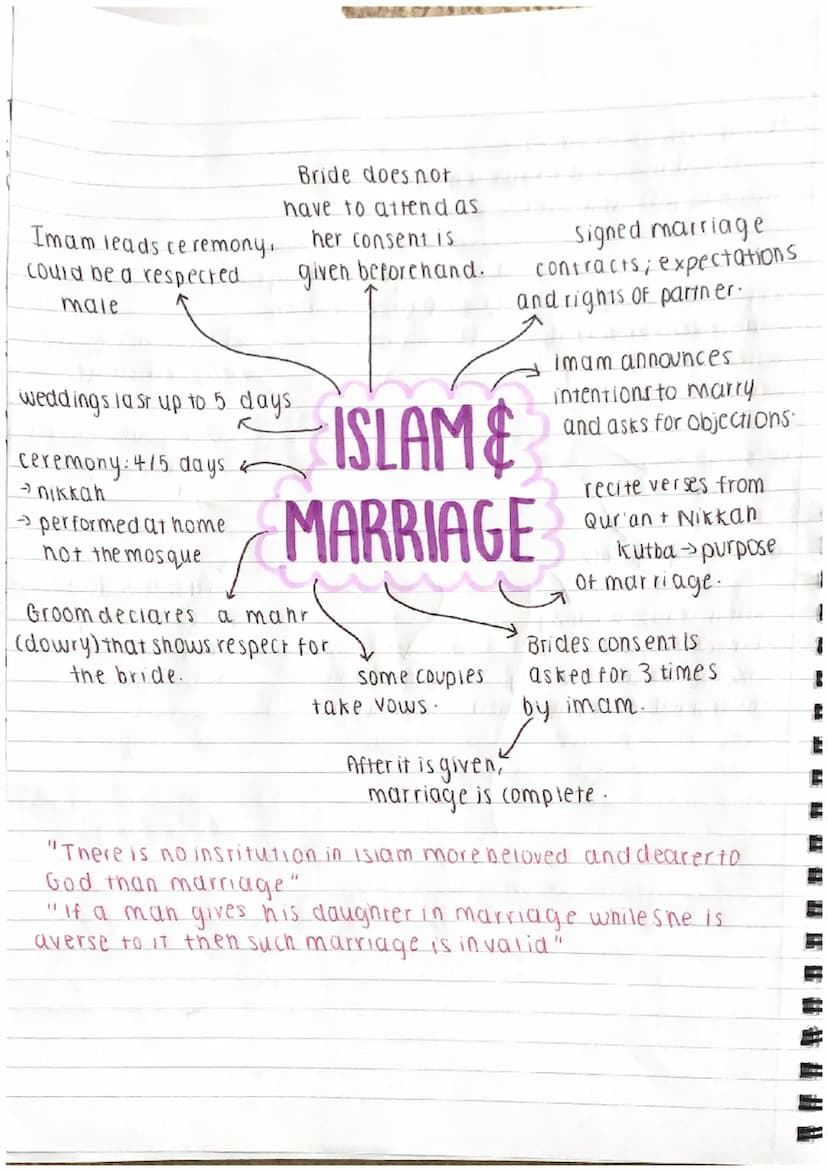 Bride does not
have to attend as
her consent is
given beforehand.
Imam leads ceremony,
could be a respected
male
signed marriage
contracts; expectations
and rights of partner.
imam announces
intentions to marry
and asks for objections.
weddings last up to 5 days
ISLAM &
MARRIAGE
ceremony: 4/5 days
→ nikkah
→ performed at home
not the mosque
recite verses from
Qur'an + Nikkah
kutba → purpose
of marriage.
Groom declares a mahr
(dowry) that shows respect for
the bride.
some couples
take vows.
Brides consent is
asked for 3 times
by imam.
After it is given,
marriage is complete.
"There is no institution in islam more beloved and dearer to
God than marriage"
"If a man gives his daughter in marriage while she is
averse to it then such marriage is invalid"